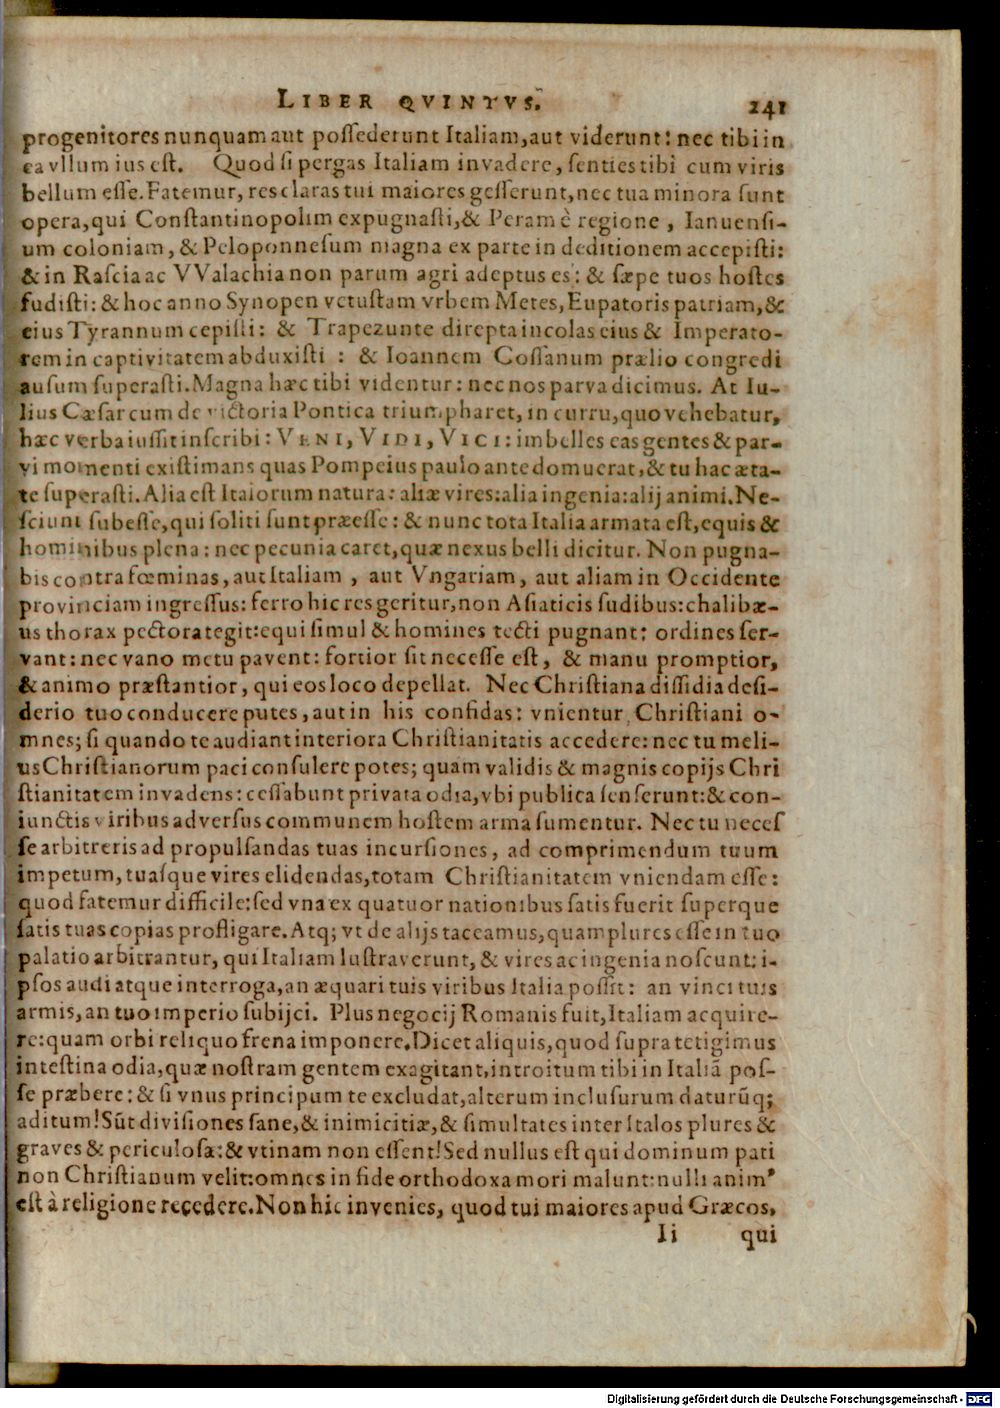 LIBER QVINTVS. 241
progenitores nunquam aut possederunt Italiam, aut viderunt: nec tibi in
ea vllum ius est. Quod si pergas Italiam invadere, senties tibi cum viris
bellum esse. Fatemur, res claras tui maiores gesserunt, nec tua minora sunt
opera, qui Constantinopolim expugnasti, & Peram è regione, Ianuensi-
um coloniam, & Peloponnesum magna ex parte in deditionem accepisti:
& in Rascia ac VValachia non parum agri adeptus es: & sæpe tuos hostes
fudisti: & hoc anno Synopen vetustam vrbem Metes, Eupatoris patriam, &
eius Tyrannum cepisti: & Trapezunte direpta incolas eius & Imperato-
rem in captivitatem abduxisti : & Ioannem Cossanum prælio congredi
ausum superasti. Magna hæc tibi videntur: nec nos parva dicimus. At Iu-
lius Cæsar cum de victoria Pontica triumpharet, in curru, quo vehebatur,
hæc verba iussit inscribi: VENI, VIDI, VICI: imbelles eas gentes & par-
vi momenti existimans quas Pompeius paulo ante domuerat, & tu hac æta-
te superasti. Alia est Italorum natura: aliæ vires: alia ingenia: alij animi. Ne-
sciunt subesse, qui soliti sunt præesse: & nunc tota Italia armata est, equis &
hominibus plena: nec pecunia caret, quæ nexus belli dicitur. Non pugna-
bis contra fœminas, aut Italiam , aut Vngariam, aut aliam in Occidente
provinciam ingressus: ferro hic res geritur, non Asiaticis sudibus: chalibæ-
us thorax pectora tegit: equi simul & homines tecti pugnant: ordines ser-
vant: nec vano metu pavent: fortior sit necesse est, & manu promptior,
& animo præstantior, qui eos loco depellat. Nec Christiana dissidia desi-
derio tuo conducere putes, aut in his confidas: vnientur Christiani o-
mnes; si quando te audiant interiora Christianitatis accedere: nec tu meli-
us Christianorum paci consulere potes; quam validis & magnis copijs Chri
stianitatem invadens: cessabunt privata odia, vbi publica senserunt: & con-
iunctis viribus adversus communem hostem arma sumentur. Nec tu neces
se arbitreris ad propulsandas tuas incursiones, ad comprimendum tuum
impetum, tuasque vires elidendas, totam Christianitatem vniendam esse:
quod fatemur difficile: sed vna ex quatuor nationibus satis fuerit superque
satis tuas copias profligare. Atq; vt de alijs taceamus, quamplures esse in tuo
palatio arbitrantur, qui Italiam lustraverunt, & vires ac ingenia noscunt: i-
psos audi atque interroga, an æquari tuis viribus Italia possit: an vinci tuis
armis, an tuo imperio subijci. Plus negocij Romanis fuit, Italiam acquire-
re: quam orbi reliquo frena imponere. Dicet aliquis, quod supra tetigimus
intestina odia, quæ nostram gentem exagitant, introitum tibi in Italiã pos-
se præbere: & si vnus principum te excludat, alterum inclusurum daturũq;
aditum! Sũt divisiones sane, & inimicitiæ, & simultates inter Italos plures &
graves & periculosæ: & vtinam non essent! Sed nullus est qui dominum pati
non Christianum velit: omnes in fide orthodoxa mori malunt: nulli anim⁹
est à religione recedere. Non hic invenies, quod tui maiores apud Græcos,
Ii qui
Digitalisierung gefördert durch die Deutsche Forschungsgemeinschaft - DFG